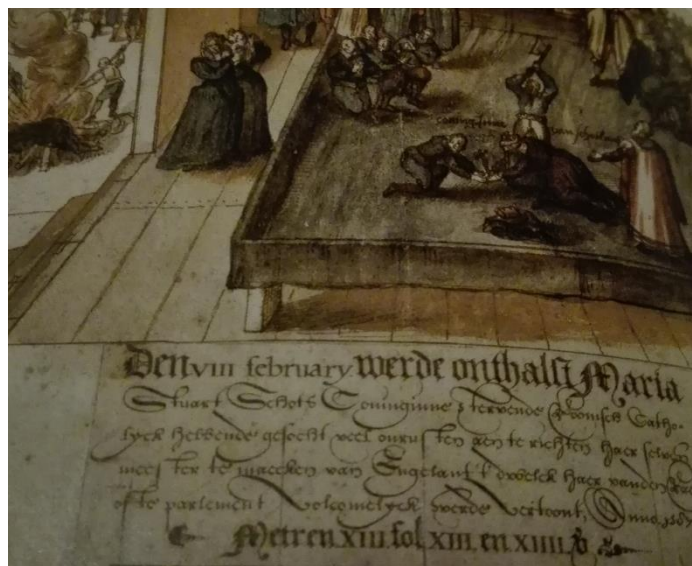 Den viii february werde onthalst Maria
Stuart Schots Coninginne stervende Roomsch Catho-
lyck hebbende gesocht veel onrusten aen te richten haer selven
meester te maecken van Engelant 't dwelck haer vanden
ofte parlement volcomelyck werde vertoont, Anno 1587
Metren xiii fol xiii en xiiii